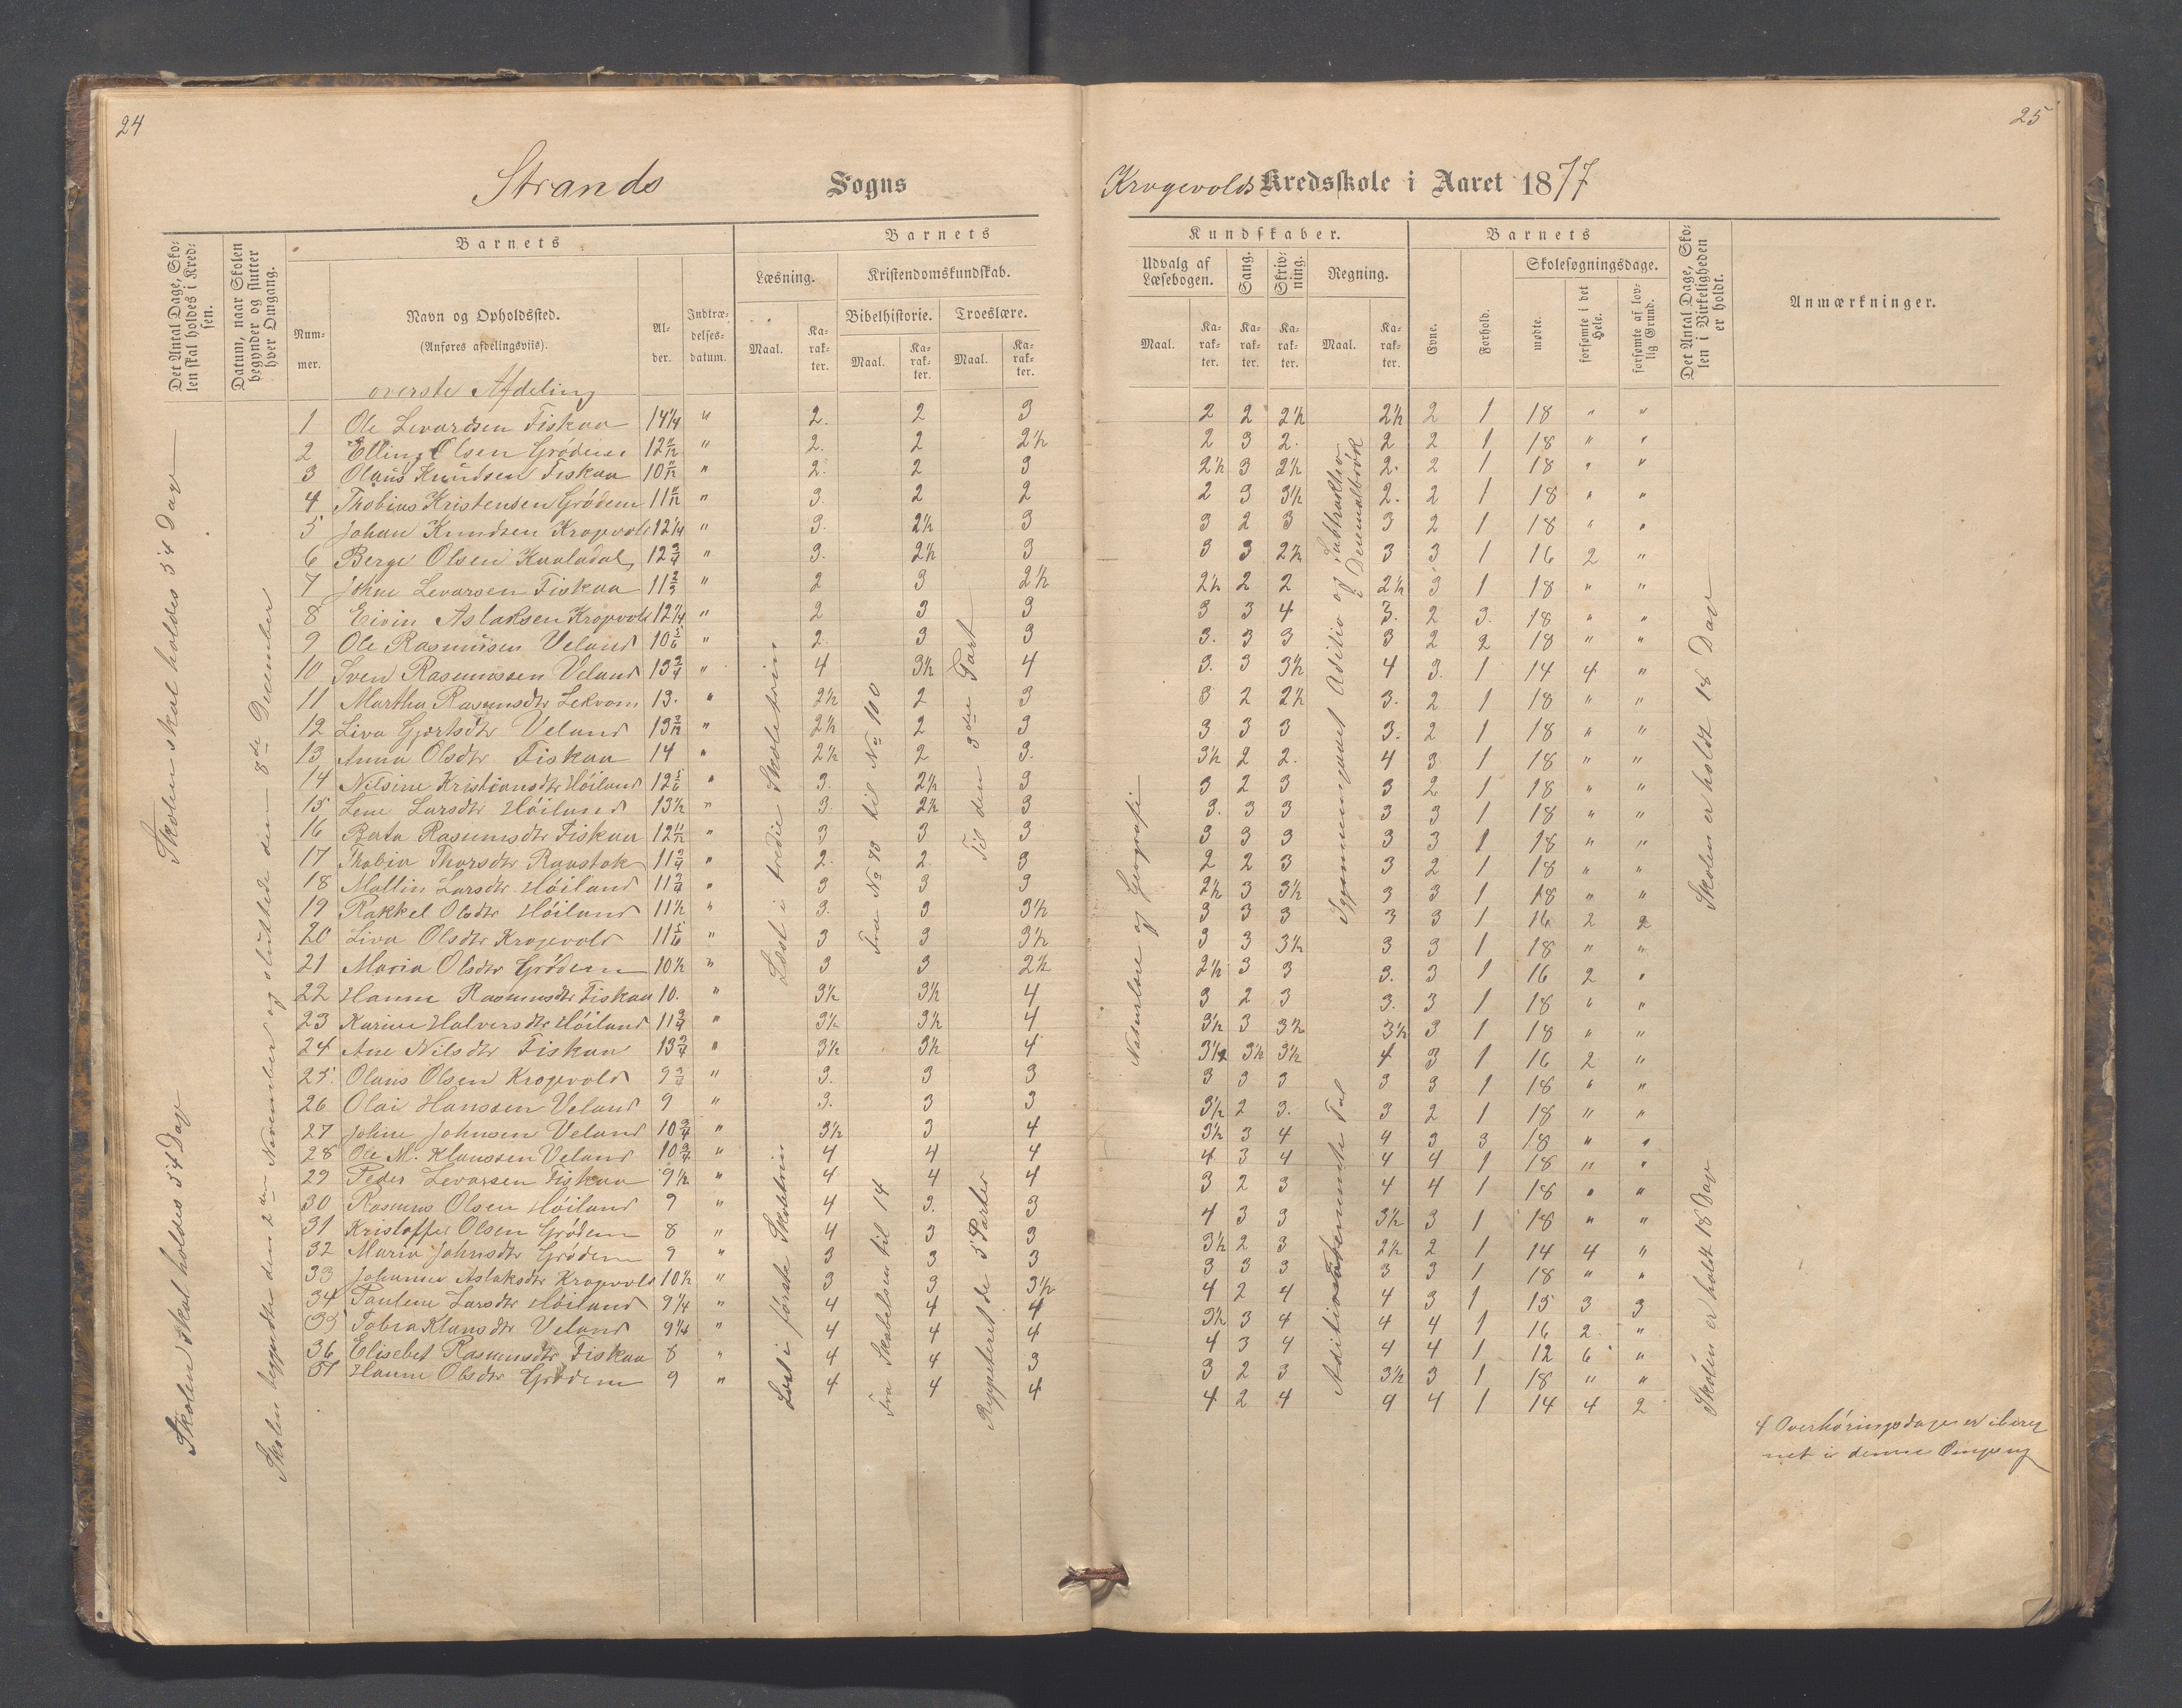 24
25
Strands Sogns
Krogevolds Kredsskole i Aaret 1877
Det Antal Dage, Sko-
len skal holdes i Kred-
sen.
Datum, naar Skolen
begynder og slutter
hver Omgang.
Barnets
Num-
mer.
Navn og Opholdssted.
(Anføres afdelingsviis).
Al-
der.
Indtræ-
delses-
datum.
Barnets
Læsning.
Maal.
Ka-
rak-
ter.
Kristendomskundskab.
Bibelhistorie.
Maal.
Ka-
rak-
ter.
Troeslære.
Maal.
Ka-
rak-
ter.
Kundskaber.
Udvalg af
Læsebogen.
Maal.
Ka-
rak-
ter.
Sang.
Ka-
rak-
ter.
Skriv-
ning.
Ka-
rak-
ter.
Regning.
Maal.
Ka-
rak-
ter.
Barnets
Evne.
Forhold.
Skolesøgningsdage.
mødte.
forsømte i det
Hele.
forsømte af lov-
lig Grund.
Det Antal Dage, Sko-
len i Virkeligheden
er holdt.
Anmærkninger.
overste Afdeling
1 Ole Levardsen Fiskaa 14 1/4 " 2. 2 3 2 2 2½ 2½ 2 1 18 " "
2 Elling Olsen Grødem 12 11/12 " 2. 2 2½ 2 3 2. 2 2 1 18 " "
3 Olaus Knudsen Fiskaa 10 11/12 " 2. 2 3 2½ 3 2½ 2. 2 1 18 " "
4 Thobias Kristensen Grødem 11 11/12 " 3. 2 2 2 3 3½ 2. 2 1 18 " "
5 Johan Knudsen Krogevold 12 1/4 " 3. 2½ 3 3 2 3 3 2 1 18 " "
6 Berge Olsen Kaaladal 12 3/4 " 3. 2½ 3 3 3 2½ 3 3 1 16 2 "
7 Johne Levarsen Fiskaa 11 2/3 " 2 3 2½ 2½ 2 2 2½ 3 1 18 " "
8 Eivin Aslaksen Krogevold 12 1/4 " 2 3 3 3 3 4 3. 2 3. 18 " "
9 Ole Rasmusen Veland 10 5/6 " 2. 3 3 3. 3 3 3 2 2 18 " "
10 Sven Rasmussen Veland 13 3/4 " 4 3½ 4 3. 3 3½ 4 3. 1 14 4 "
11 Martha Rasmusdtr Lekvam 13. " 2½ 2 3 3 2 2½ 3. 2 1 18 " "
12 Liva Gjertsdtr Veland 13 3/12 " 2½ 2 3 3 3 3 3. 2 1 18 " "
13 Anna Olsdtr Fiskaa 14 " 2½ 2 3. 3½ 2 2. 4 3 1 18 " "
14 Nilsine Kristiansdtr Høiland 12 5/6 " 3. 2½ 3 3 2 3 3 2 1 18 " "
15 Lene Larsdtr Høiland 13½ " 3. 2½ 3 3. 3 3 3 3 1 18 " "
16 Berta Rasmusdtr Fiskaa 12 11/12 " 3 3 3 3 3 3 3 3 1 18 " "
17 Thobia Thorsdtr Raustok 11 3/4 " 2. 2. 3 2 2 3 3 2 1 18 " "
18 Mallin Larsdtr Høiland 11 3/4 " 3 3 3 2½ 3 3½ 3 3 1 18 " "
19 Rakkel Olsdtr Høiland 11½ " 3. 3 3½ 3 3 3 3 3 1 16 2 2
20 Liva Olsdtr Krogevold 11 5/6 " 3 3 3½ 3 3 3½ 3 3 1 18 " "
21 Maria Olsdtr Grødem 10½ " 3 3 2½ 2½ 3 3 3. 3 1 16 2 "
22 Hanne Rasmusdtr Fiskaa 10. " 3½ 3½ 4 3 2 3 3. 3 1 18 " "
23 Karine Halversdtr Høiland 11 3/4 " 3½ 3½ 4 3½ 3 3½ 3½ 3 1 18 " "
24 Ane Nilsdtr Fiskaa 13 3/4 " 3½ 3½ 4 3½ 3½ 3½ 4 3 1 16 2 "
25. Olaus Olsen Krogevold 9 3/4 " 3. 3 3 3 3 3 3 3 1 18 " "
26 Olai Hanssen Veland 9 " 3. 3 3 3½ 2 3. 3 2 1 18 " "
27 Johne Johnsen Veland 10 3/4 " 3½ 3 4 3½ 3 4 4 3 3 18 " "
28 Ole M. Klaussen Veland 10 3/4 " 4 4 4 4 3 4 4 4 1 18 " "
29 Peder Levarsen Fiskaa 9½ " 4 4 4 3 2 3 4 4 1 18 " "
30 Rasmus Olsen Høiland 9 " 4 3. 3 4 3 3 3½ 3 1 18 " "
31 Kristoffer Olsen Grødem 8 " 4 3 3 3½ 2 3 2½ 2 1 14 4 "
32 Maria Johnsdtr Grødem 9 " 3 3 3 3 3 3 3 3 1 18 " "
33 Johanne Aslaksdtr Krogevold 10½ " 3 3 3½ 4 2 4 4 3 1 15 3 3
34 Pauline Larsdtr Høiland 9 1/4 " 4 4 4 3½ 3 4 4 4 1 16 2. "
35 Tobia Klausdtr Veland 9 1/4 " 4 4 4 4 3 4 4 4 1 12 6 "
36 Elisebet Rasmusdtr Fiskaa 8 " 4 4 3 3 2 3 3½ 3 1 18 " "
37 Hanne Olsdtr Grødem 9 " 4 4 4 4 2 4 4 4 1 14 4 2
Skolen skal holdes 54 Dage
Skolen skal holdes 54 Dage
Skolen begyndte den 2den November og sluttede den 8de December
Læst i tredie Skoletrin
Læst i første Skoletrin
Fra No 70 til No 100
Fra Skabelsen til 14
Til den 3die Part
Reppeteret de 5 Parter
Naturlære og Geografi
Aditio og Subtraktio
i Decemalbrøk
Skolen er holdt 18 Dage
Skolen er holdt 18 Dage
4 Overhøringsdage er ibereg
net i denne Omgang